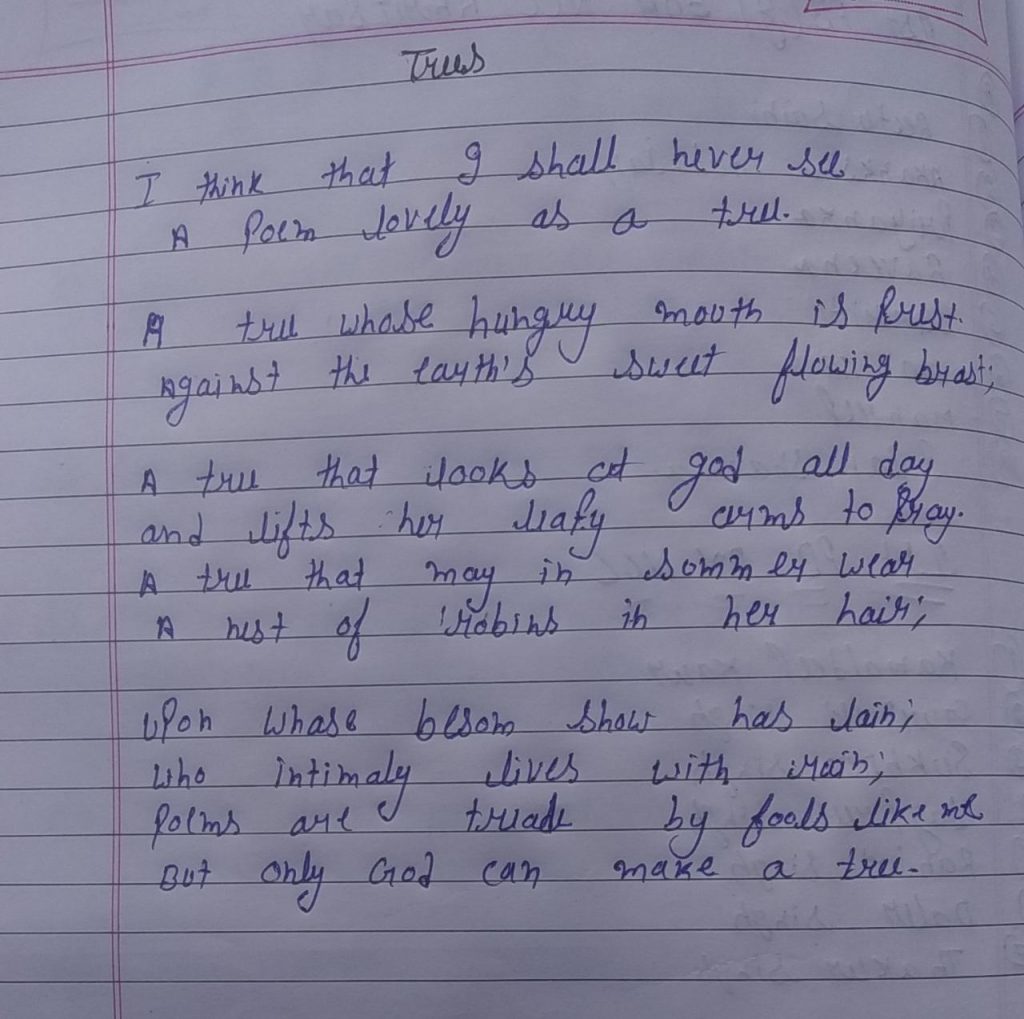 Trees
I think that I shall never see
A Poem lovely as a tree.
A tree whose hungry mouth is Prest.
Against the earth's sweet flowing brast;
A tree that looks at god all day
and lifts her leafy arms to Pray.
A tree that may in sommer wear
A nest of robins in her hair;
Upon whase besom snow has lain;
who intimaly lives with rain;
Poems are by fools like me
But only God can make a tree.